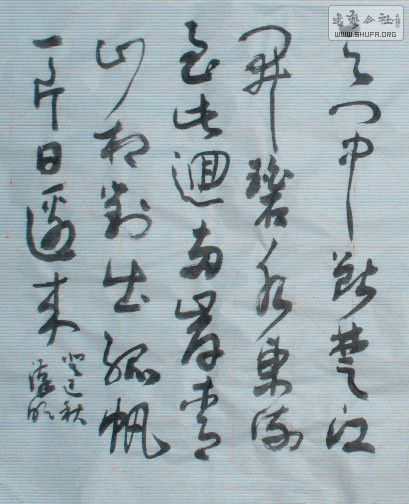 書藝公社
WWW.SHUFA.ORG
天门中断楚江
開碧水東流
至此迴两岸青
山相對出孤帆
一片日邊来
癸巳秋